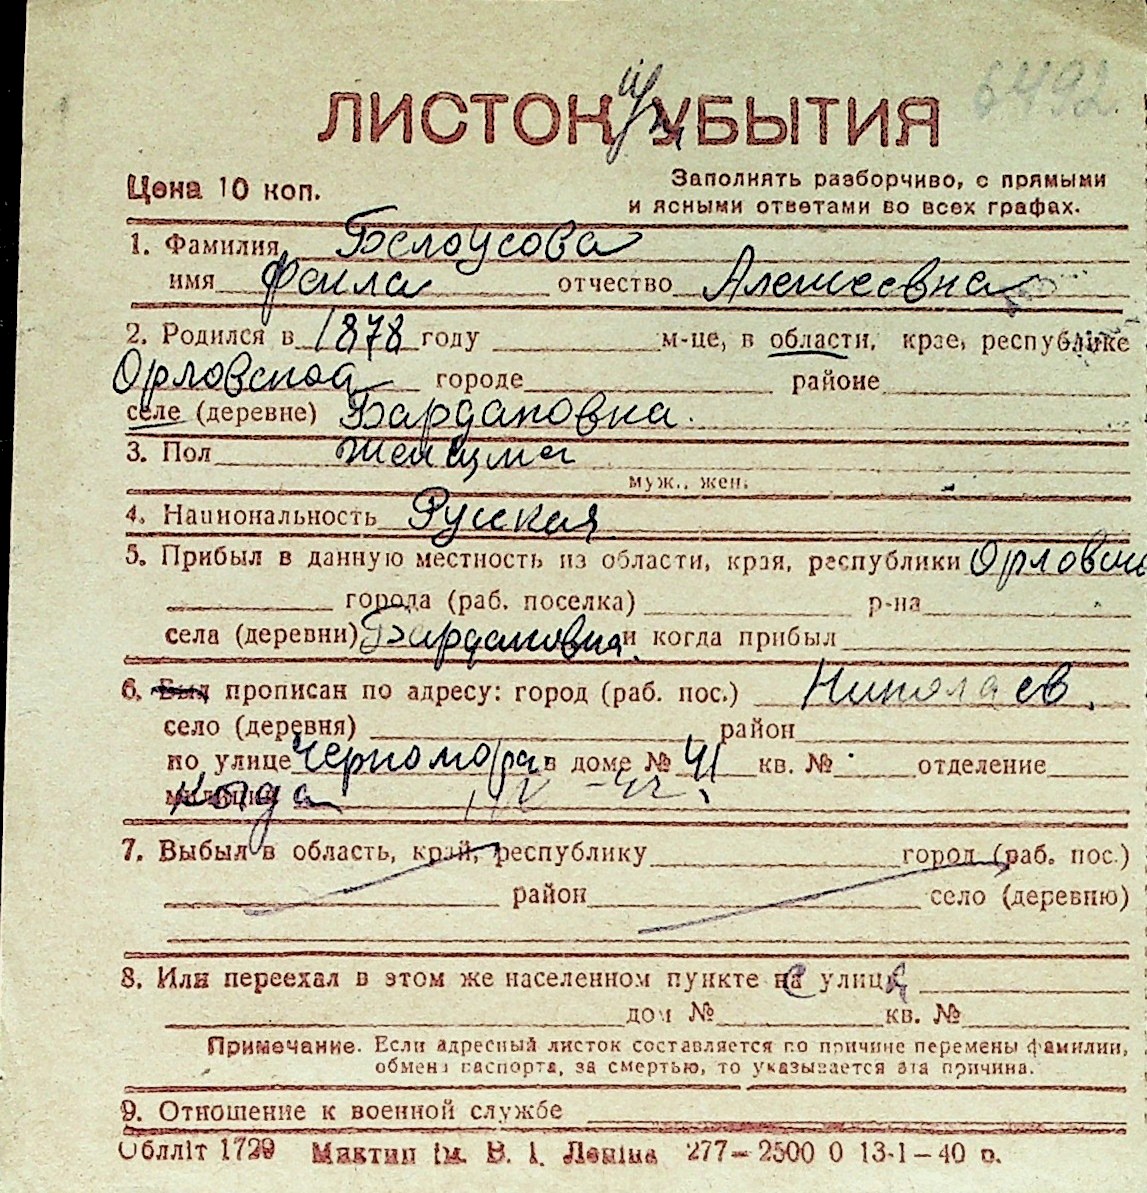 6492
ЛИСТОК УБЫТИЯ
Цена 10 коп.
Заполнять разборчиво, с прямыми
и ясными ответами во всех графах.
1. Фамилия Белоусова
имя Фекла отчество Алексеевна
2. Родился в 1878 году м-це, в области, крае, республике
Орловской городе районе
селе (деревне) Бардаковка.
3. Пол женщина
муж., жен.
4. Национальность Русская
5. Прибыл в данную местность из области, края, республики Орловской
города (раб. поселка) р-на
села (деревни) Бардаковка. и когда прибыл
6. Был прописан по адресу: город (раб. пос.) Николаев.
село (деревня) район
по улице Черномора в доме № 41 кв. № отделение
милиции когда
7. Выбыл в область, край, республику город (раб. пос.)
район село (деревню)
8. Или переехал в этом же населенном пункте на улицу
дом № кв. №
Примечание. Если адресный листок составляется по причине перемены фамилии,
обмена паспорта, за смертью, то указывается эта причина.
9. Отношение к военной службе
Облліт 1729 Миктип ім. В. І. Леніна 277—2500 0 13-1—40 р.